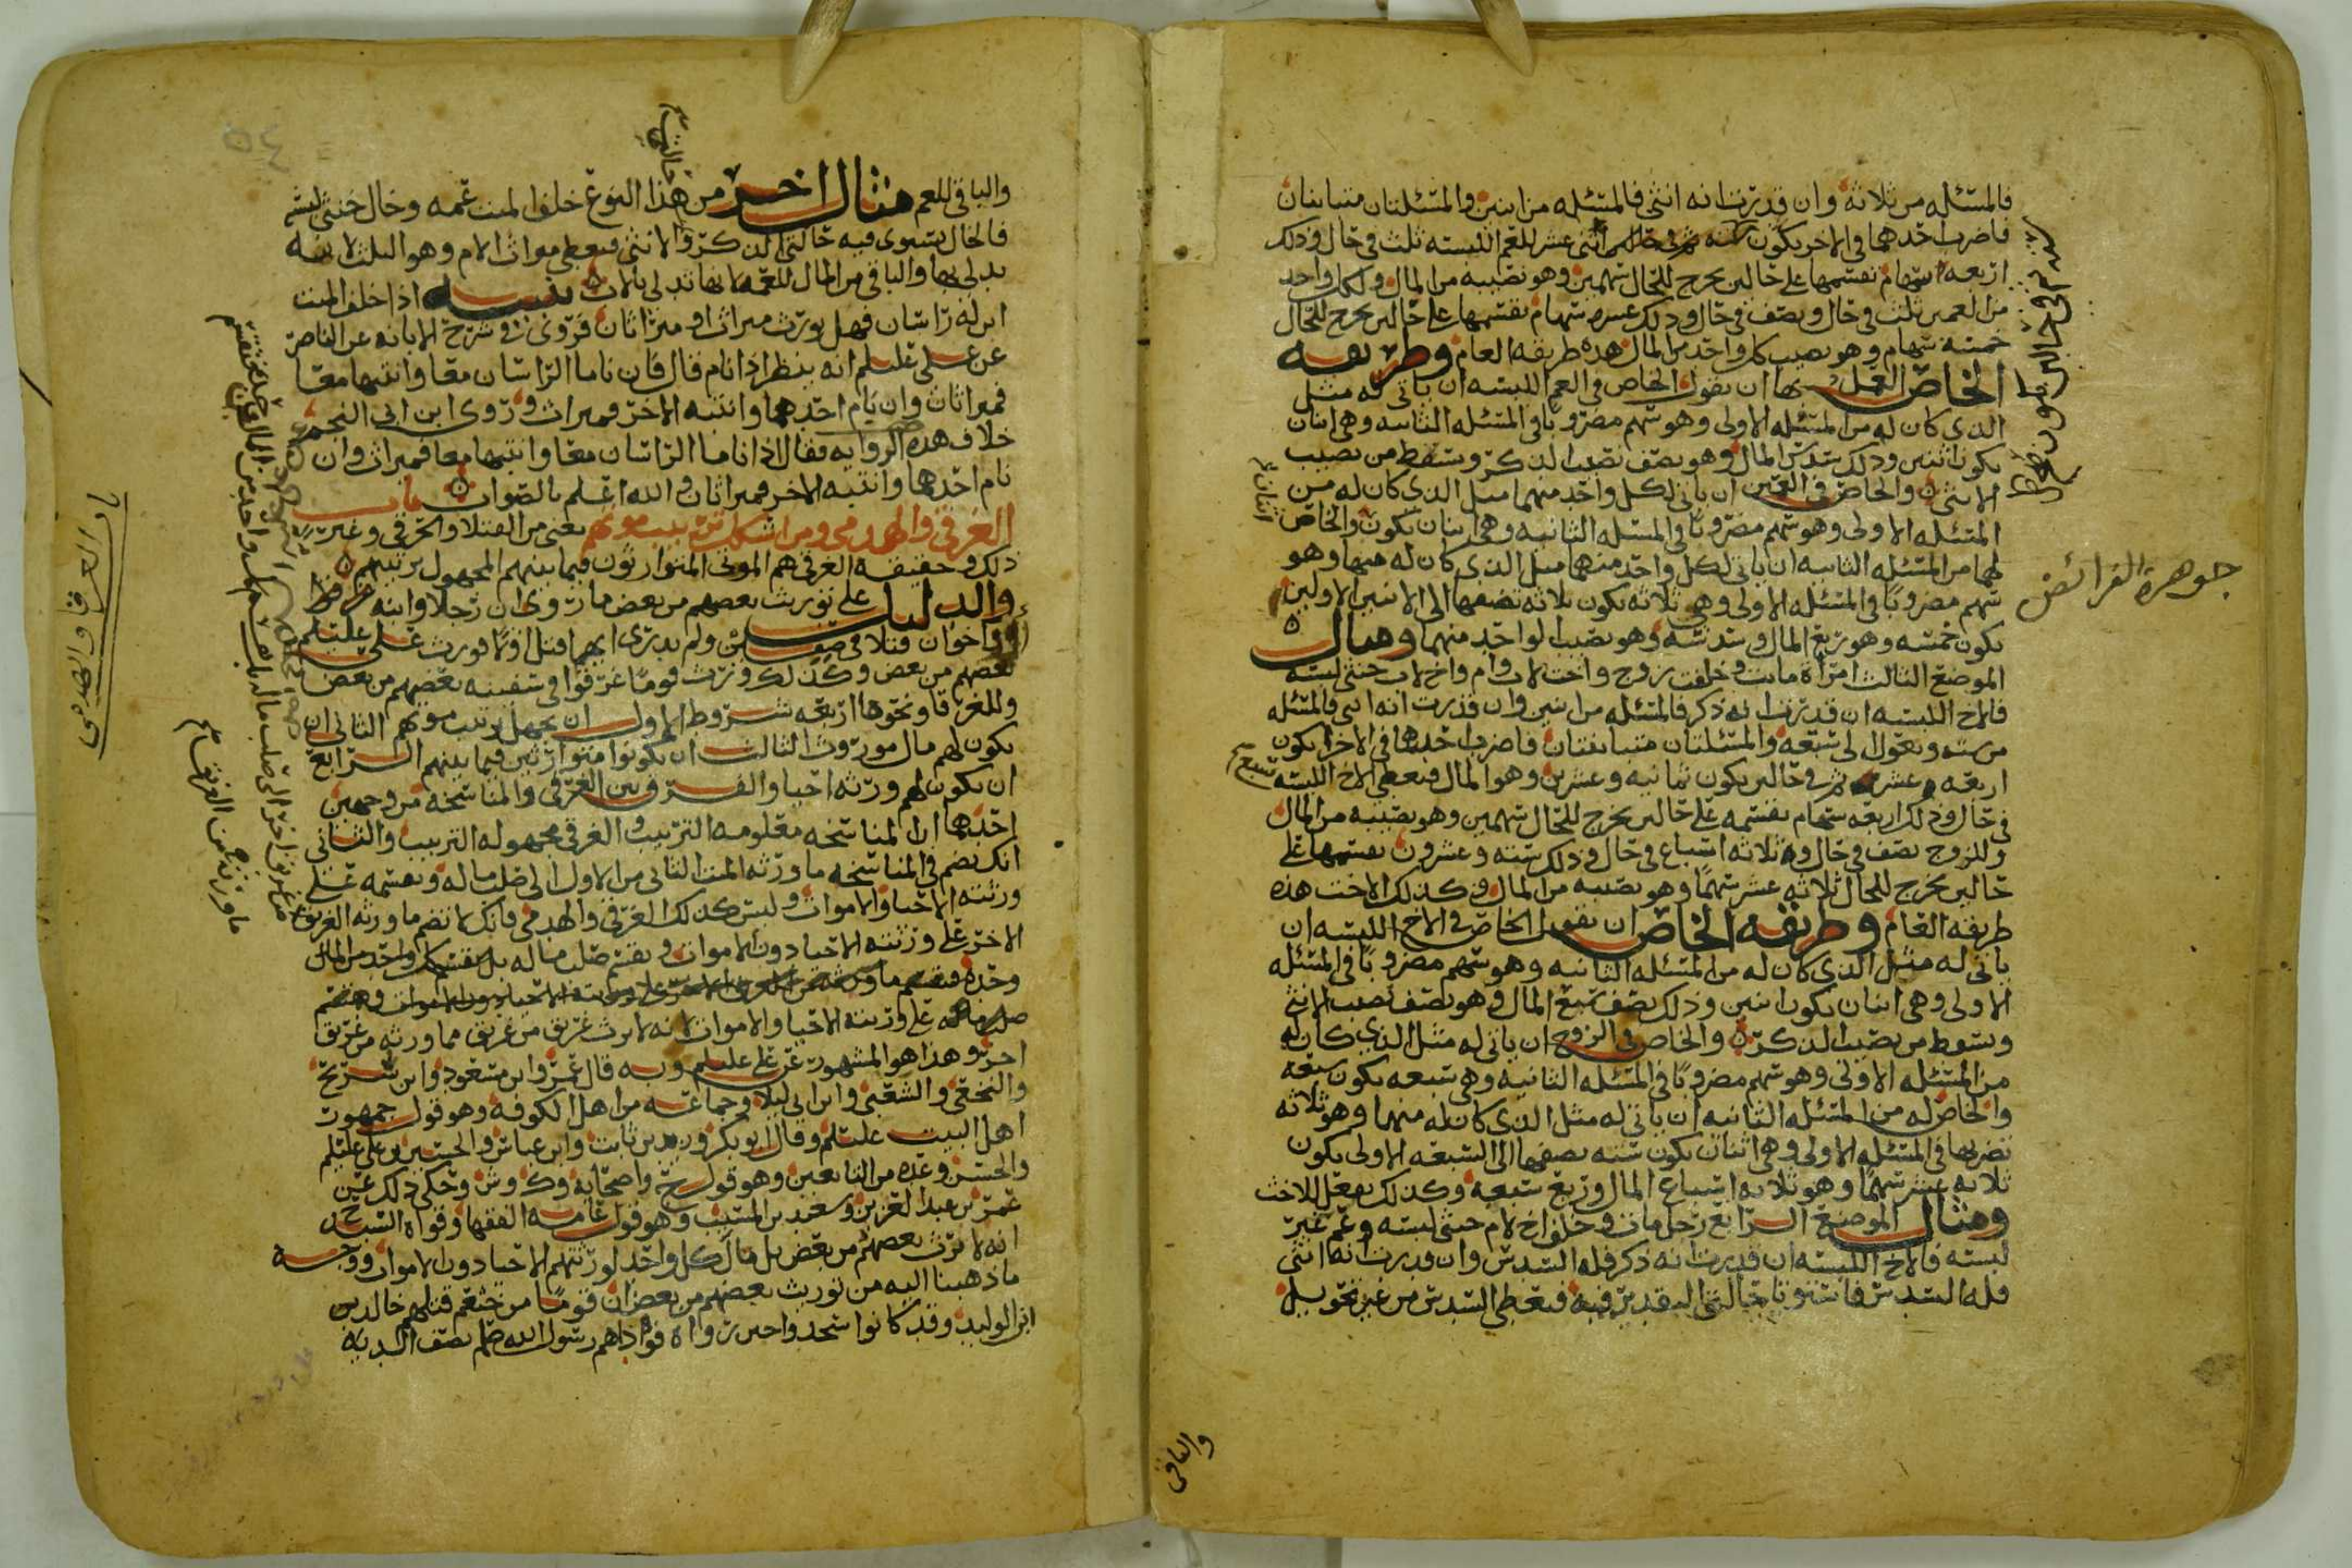 فالمسئله من ثلاثة وان قدرت انه انثى فالمسئله من اثنين والمسئلتان متباينتان
فاضرب احدهما في الاخر يكون سته ثم في حالين اثنى عشر للعم اللبسه ثلث في حال وذلك
اربعه اسهام تقسمها على حالين يخرج للحال سهمين وهو نصيبه من المال ولكل واحد
من العمين ثلث في حال ونصف في حال وذلك عشره سهام تقسمها على حالين يخرج للحال
خمسه سهام وهو نصيب كل واحد من المال هذه طريقه العام وطريقه
الخاص العمل بها ان تقول الخاص في العم اللبسه ان ياتى له مثل
الذي كان له من المسئله الاولى وهو سهم مضروبا في المسئله الثانيه وهي اثنان
يكون اثنين وذلك سدس المال وهو نصف نصيب الذكر وسقط من نصيب
الانثى والخاص في العمين ان ياتى لكل واحد منهما مثل الذي كان له من
المسئله الاولى وهو سهم مضروبا في المسئله الثانيه وهي اثنان يكون والخاص
لهما من المسئله الثانيه ان ياتى لكل واحد منهما مثل الذي كان له منها وهو
سهم مضروبا في المسئله الاولى وهي ثلاثه يكون ثلاثه تضمها الى الاثنين الاولين
يكون خمسه وهو ربع المال وسدسه وهو نصيب لواحد منهما ومثال
الموضع الثالث امراه ماتت وخلفت زوج واخت لاب وام واخ لاب خنثى لبسه
فالاخ اللبسه ان قدرت انه ذكر فالمسئله من اثنين وان قدرت انه انثى فالمسئله
من سته وتعول الى سبعه والمسئلتان متباينتان فاضرب احدهما في الاخر يكون
اربعه عشر ثم في حالين يكون ثمانيه وعشرين وهو المال فيعطى الاخ اللبسه سبع
في حال وذلك اربعه سهام تقسمه على حالين يخرج للحال سهمين وهو نصيبه من المال
وللزوج نصف في حال وثلاثه اسباع في حال وذلك سته وعشرون تقسمها على
حالين يخرج للحال ثلاثه عشر سهما وهو نصيبه من المال وكذلك الاخت هذه
طريقه العام وطريقه الخاص ان تقول الخاص في الاخ اللبسه ان
ياتى له مثل الذي كان له من المسئله الثانيه وهو سهم مضروبا في المسئله
الاولى وهي اثنان يكون اثنين وذلك نصف سبع المال وهو نصف نصيب الانثى
وسقط من نصيب الذكر والخاص في الزوج ان ياتى له مثل الذي كان له
من المسئله الاولى وهو سهم مضروبا في المسئله الثانيه وهي سبعه يكون سبعه
والخاص له من المسئله الثانيه ان ياتى له مثل الذي كان له منها وهو ثلاثه
تضربها في المسئله الاولى وهي اثنان يكون سته تضمها الى السبعه الاولى يكون
ثلاثه عشر سهما وهو ثلاثه اسباع المال وربع سبعه وكذلك تفعل للاخت
ومثال الموضع الرابع رجل مات وخلف اخ لام خنثى لبسه وعم غير
لبسه فالاخ اللبسه ان قدرت انه ذكر فله السدس وان قدرت انه انثى
فله السدس فاستوتا حالتى التقدير فيه فيعطى السدس من غير تحويل
جوهرة الفرائض
والباقي
والباقي للعم مثال اخر من هذا النوع خلف الميت عمه وخال خنثى لبسه
فالخال يستوى فيه حالتى الذكر والانثى فيعطى ميراث الام وهو الثلث لانه
يدلى بها والباقي من المال للعمه لانها تدلى بالاب تنبيه اذا خلف الميت
ابن له راسان فهل يورث ميراث او ميراثان فروى في شرح الابانه عن الناصر
عن على عليلم انه ينظر اذا نام قال فان ناما الراسان معا وانتبها معا
فميراثان وان نام احدهما وانتبه الاخر فميراث وروى ابن ابى النجم
خلاف هذه الروايه فقال اذا ناما الراسان معا وانتبها معا فميراث وان
نام احدهما وانتبه الاخر فميراثان والله اعلم بالصواب باب
الغرقى والهدمى ومن اشكل ترتيب موتهم يعنى من القتلا والحرقى وغير
ذلك وحقيقه الغرقى هم الموتى المتوارثون فيما بينهم المجهول ترتيبهم
والدليل على توريث بعضهم من بعض ما روى ان رجلا وابنه
او اخوان قتلا في صفين ولم يدرى ايهما قتل اولا فورث على عليلم
بعضهم من بعض وكذلك ورث قوما غرقوا في سفينه بعضهم من بعض
وللغرقا ونحوها اربعه شروط الاول ان يجهل ترتيب موتهم الثانى ان
يكون لهم مال موروث الثالث ان يكونوا متوارثين فيما بينهم الرابع
ان يكون لهم ورثه احيا والفرق بين الغرقى والمناسخه من وجهين
احدهما ان المناسخه معلومه الترتيب والغرقى مجهوله الترتيب والثانى
انك تضم في المناسخه ما ورثه الميت الثانى من الاول الى صلب ماله وتقسمه على
ورثته الاحيا والاموات وليس كذلك الغرقى والهدمى فانك لا تضم ما ورثه الغريق
الاخر على ورثته الاحيا دون الاموات وتقسم صلب ماله بل تقسم كل واحد من المال
صلب ماله على ورثته الاحيا والاموات لانه لا يرث غريق من غريق مما ورثه من غريق
اخر وهذا هو المشهور عن على عليلم وبه قال عمر وابن مسعود وابن شريح
والنخعى والشعبى وابن ابى ليلا وجماعه من اهل الكوفه وهو قول جمهور
اهل البيت عليلم وقال ابو بكر وزيد بن ثابت وابن عباس والحسين بن على عليلم
والحسن وغيره من التابعين وهو قول ح واصحابه وك وش وحكى ذلك عن
عمر بن عبد العزيز وسعيد بن المسيب وهو قول عامه الفقها وقواه السيد ح
انه لا يرث بعضهم من بعض بل مال كل واحد لورثتهم الاحيا دون الاموات ووجه
ما ذهبنا اليه من توريث بعضهم من بعض ان قوما من خثعم قتلهم خالد بن
ابن الوليد وقد كانوا سجدوا حين راوه فوداهم رسول الله صلم نصف الديه
باب الغرقا والهدمى